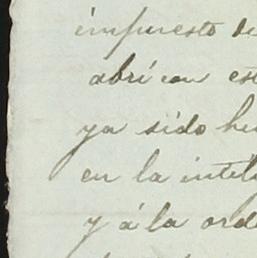 impuesto de
abri con est
ya sido he
en la intel
y á la orde